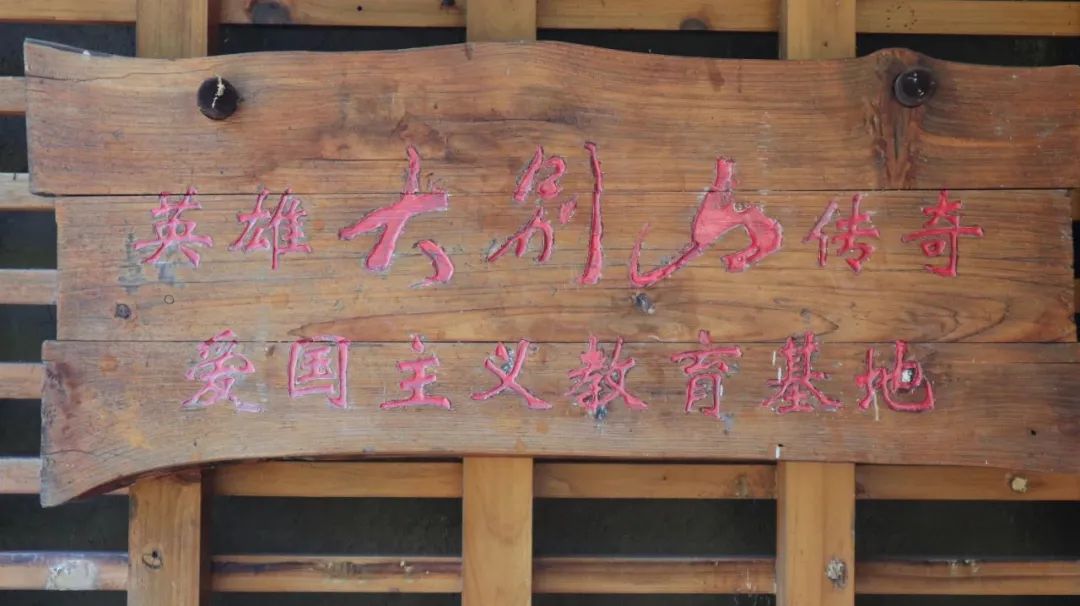 英雄大别山传奇
爱国主义教育基地